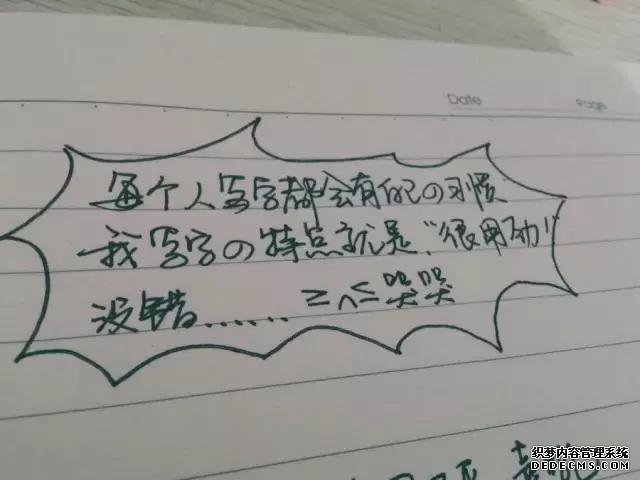 Date Page
每个人写字都会有自己の习惯
我写字の特点就是“很用力”
没错...... ≥^≤哭哭
织梦内容管理系统
DEDECMS.COM